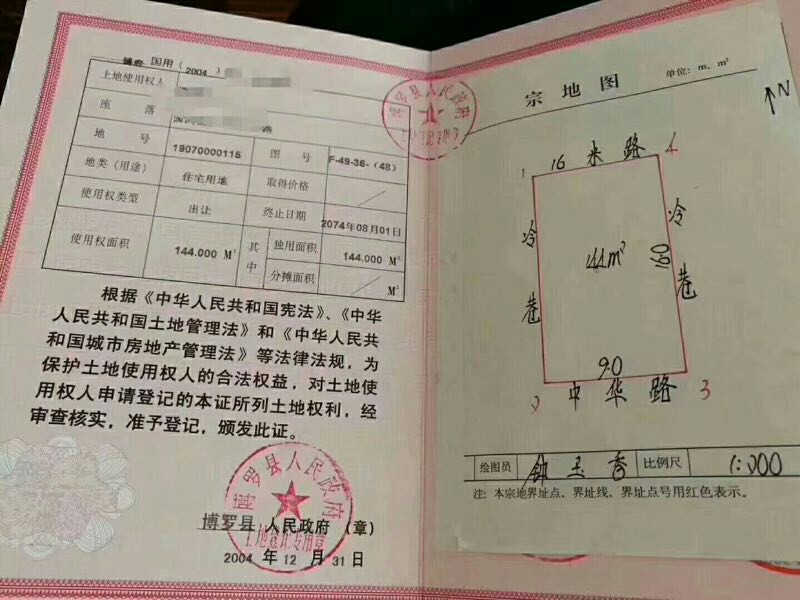 博府 国用（2004）
土地使用权人
座 落 路
地 号 19070000115 图 号 F-49-36-（48）
地类（用途） 住宅用地 取得价格
使用权类型 出让 终止日期 2074年08月01日
使用权面积 144.000 M² 其中 独用面积 144.000 M²
分摊面积 M²
根据《中华人民共和国宪法》、《中华
人民共和国土地管理法》和《中华人民共
和国城市房地产管理法》等法律法规，为
保护土地使用权人的合法权益，对土地使
用权人申请登记的本证所列土地权利，经
审查核实，准予登记，颁发此证。
博罗县人民政府
土地登记专用章
博罗县 人民政府 （章）
2004 年 12 月 31 日
博罗县人民政府
土地登记专用章
宗地图
单位：m、m²
N
1 16 米 路 4
冷 巷
144m²
16.0
冷 巷
9.0
2 中 华 路 3
绘图员 钟玉香 比例尺
注：本宗地界址点、界址线、界址点号用红色表示。